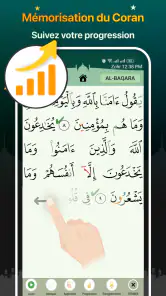 Mémorisation du Coran
Suivez votre progression
Zohr 12:36 PM
AL-BAQARA
يَقُولُ ءَامَنَّا بِٱللَّهِ وَبِٱلْيَوْمِ
وَمَا هُم بِمُؤْمِنِينَ ٨ يُخَٰدِعُونَ
ٱللَّهَ وَٱلَّذِينَ ءَامَنُوا۟ وَمَا
يَخْدَعُونَ إِلَّآ أَنفُسَهُمْ وَمَا
يَشْعُرُونَ ٩ فِى